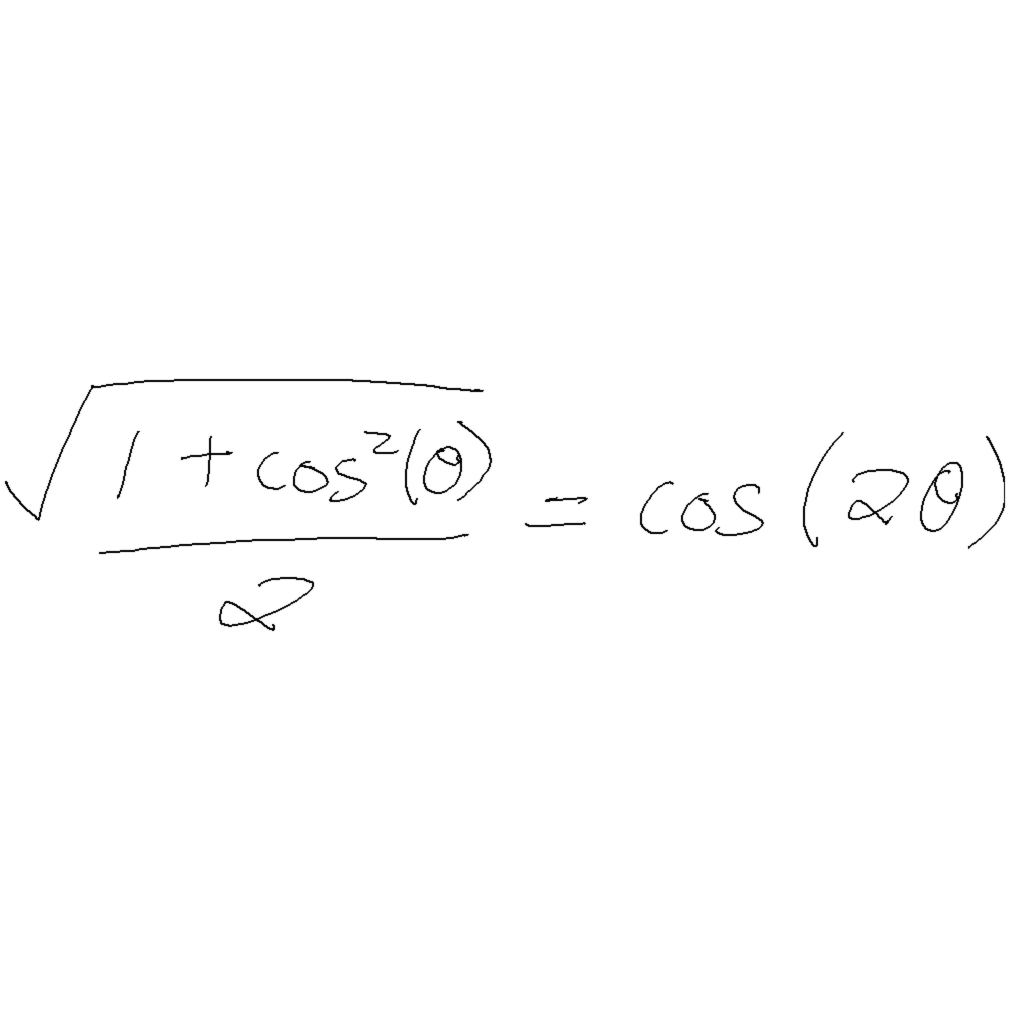 √(1 + cos²(θ))/2 = cos(2θ)